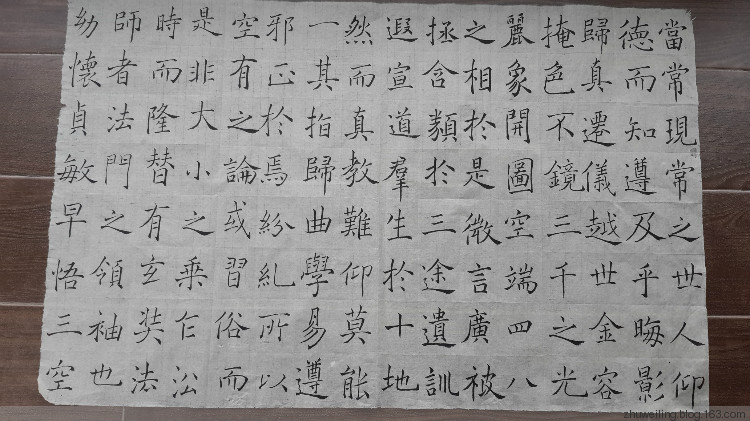 當常現常之世人仰
德而知遵及乎晦影
歸真遷儀越世金容
掩色不鏡三千之光
麗象開圖空端四八
之相於是微言廣被
拯含類於三途遺訓
遐宣道羣生於十地
然而真教難仰莫能
一其指歸曲學易遵
邪正於焉紛糺所以
空有之論或習俗而
是非大小之乘乍沿
時而隆替有玄奘法
師者法門之領袖也
幼懷貞敏早悟三空
zhuweifing.blog.163.com